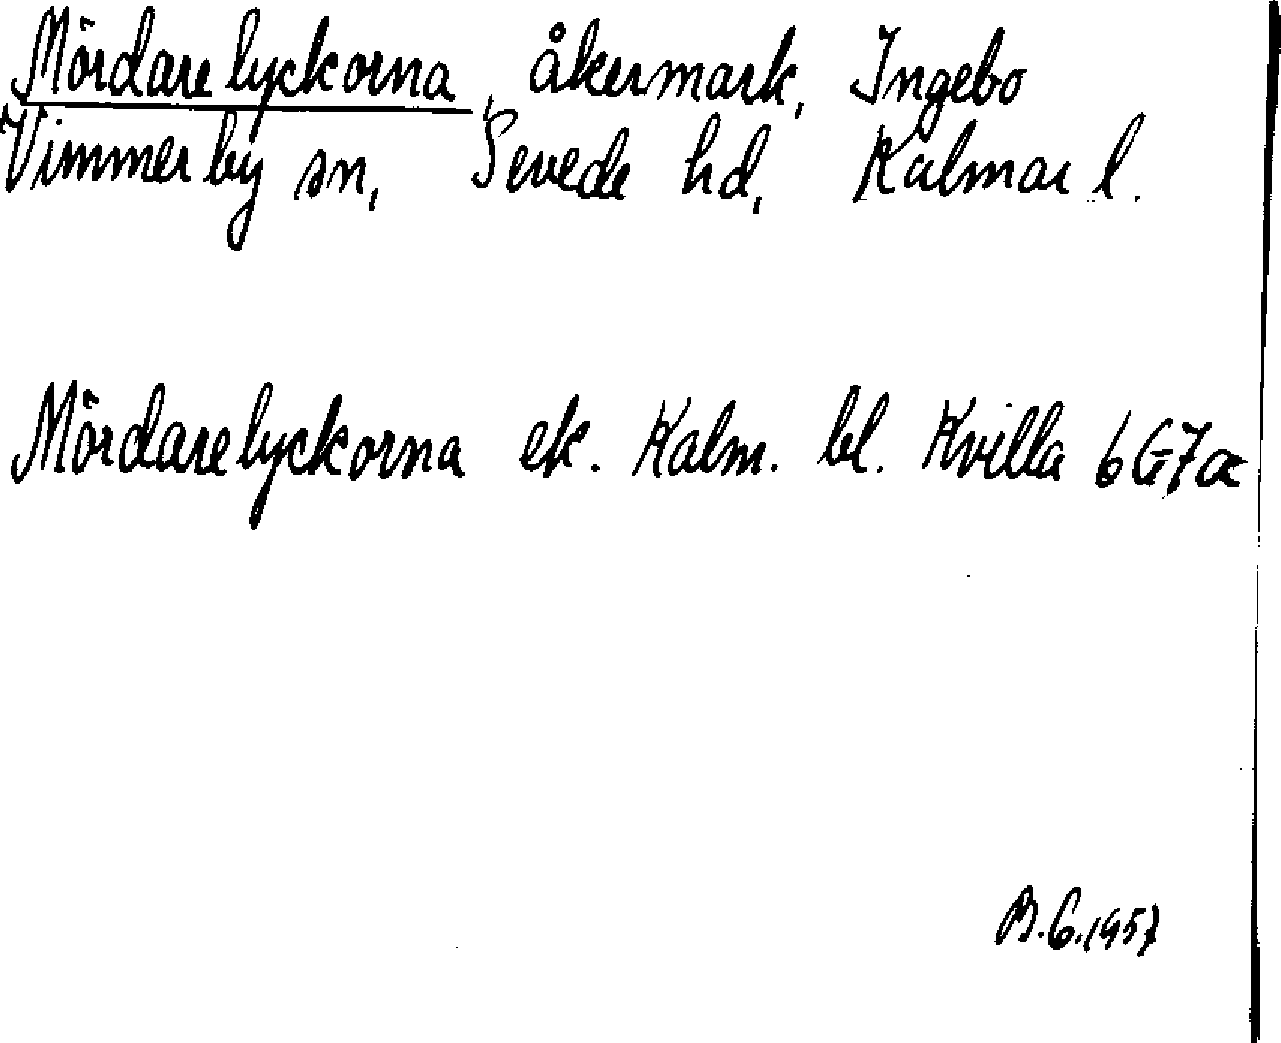 Mördarelyckorna, åkermark, Ingebo
Vimmerby sn, Sevede hd, Kalmar l.
Mördarelyckorna ek. Kalm. bl. Kvilla 6G7a
B.G.1957